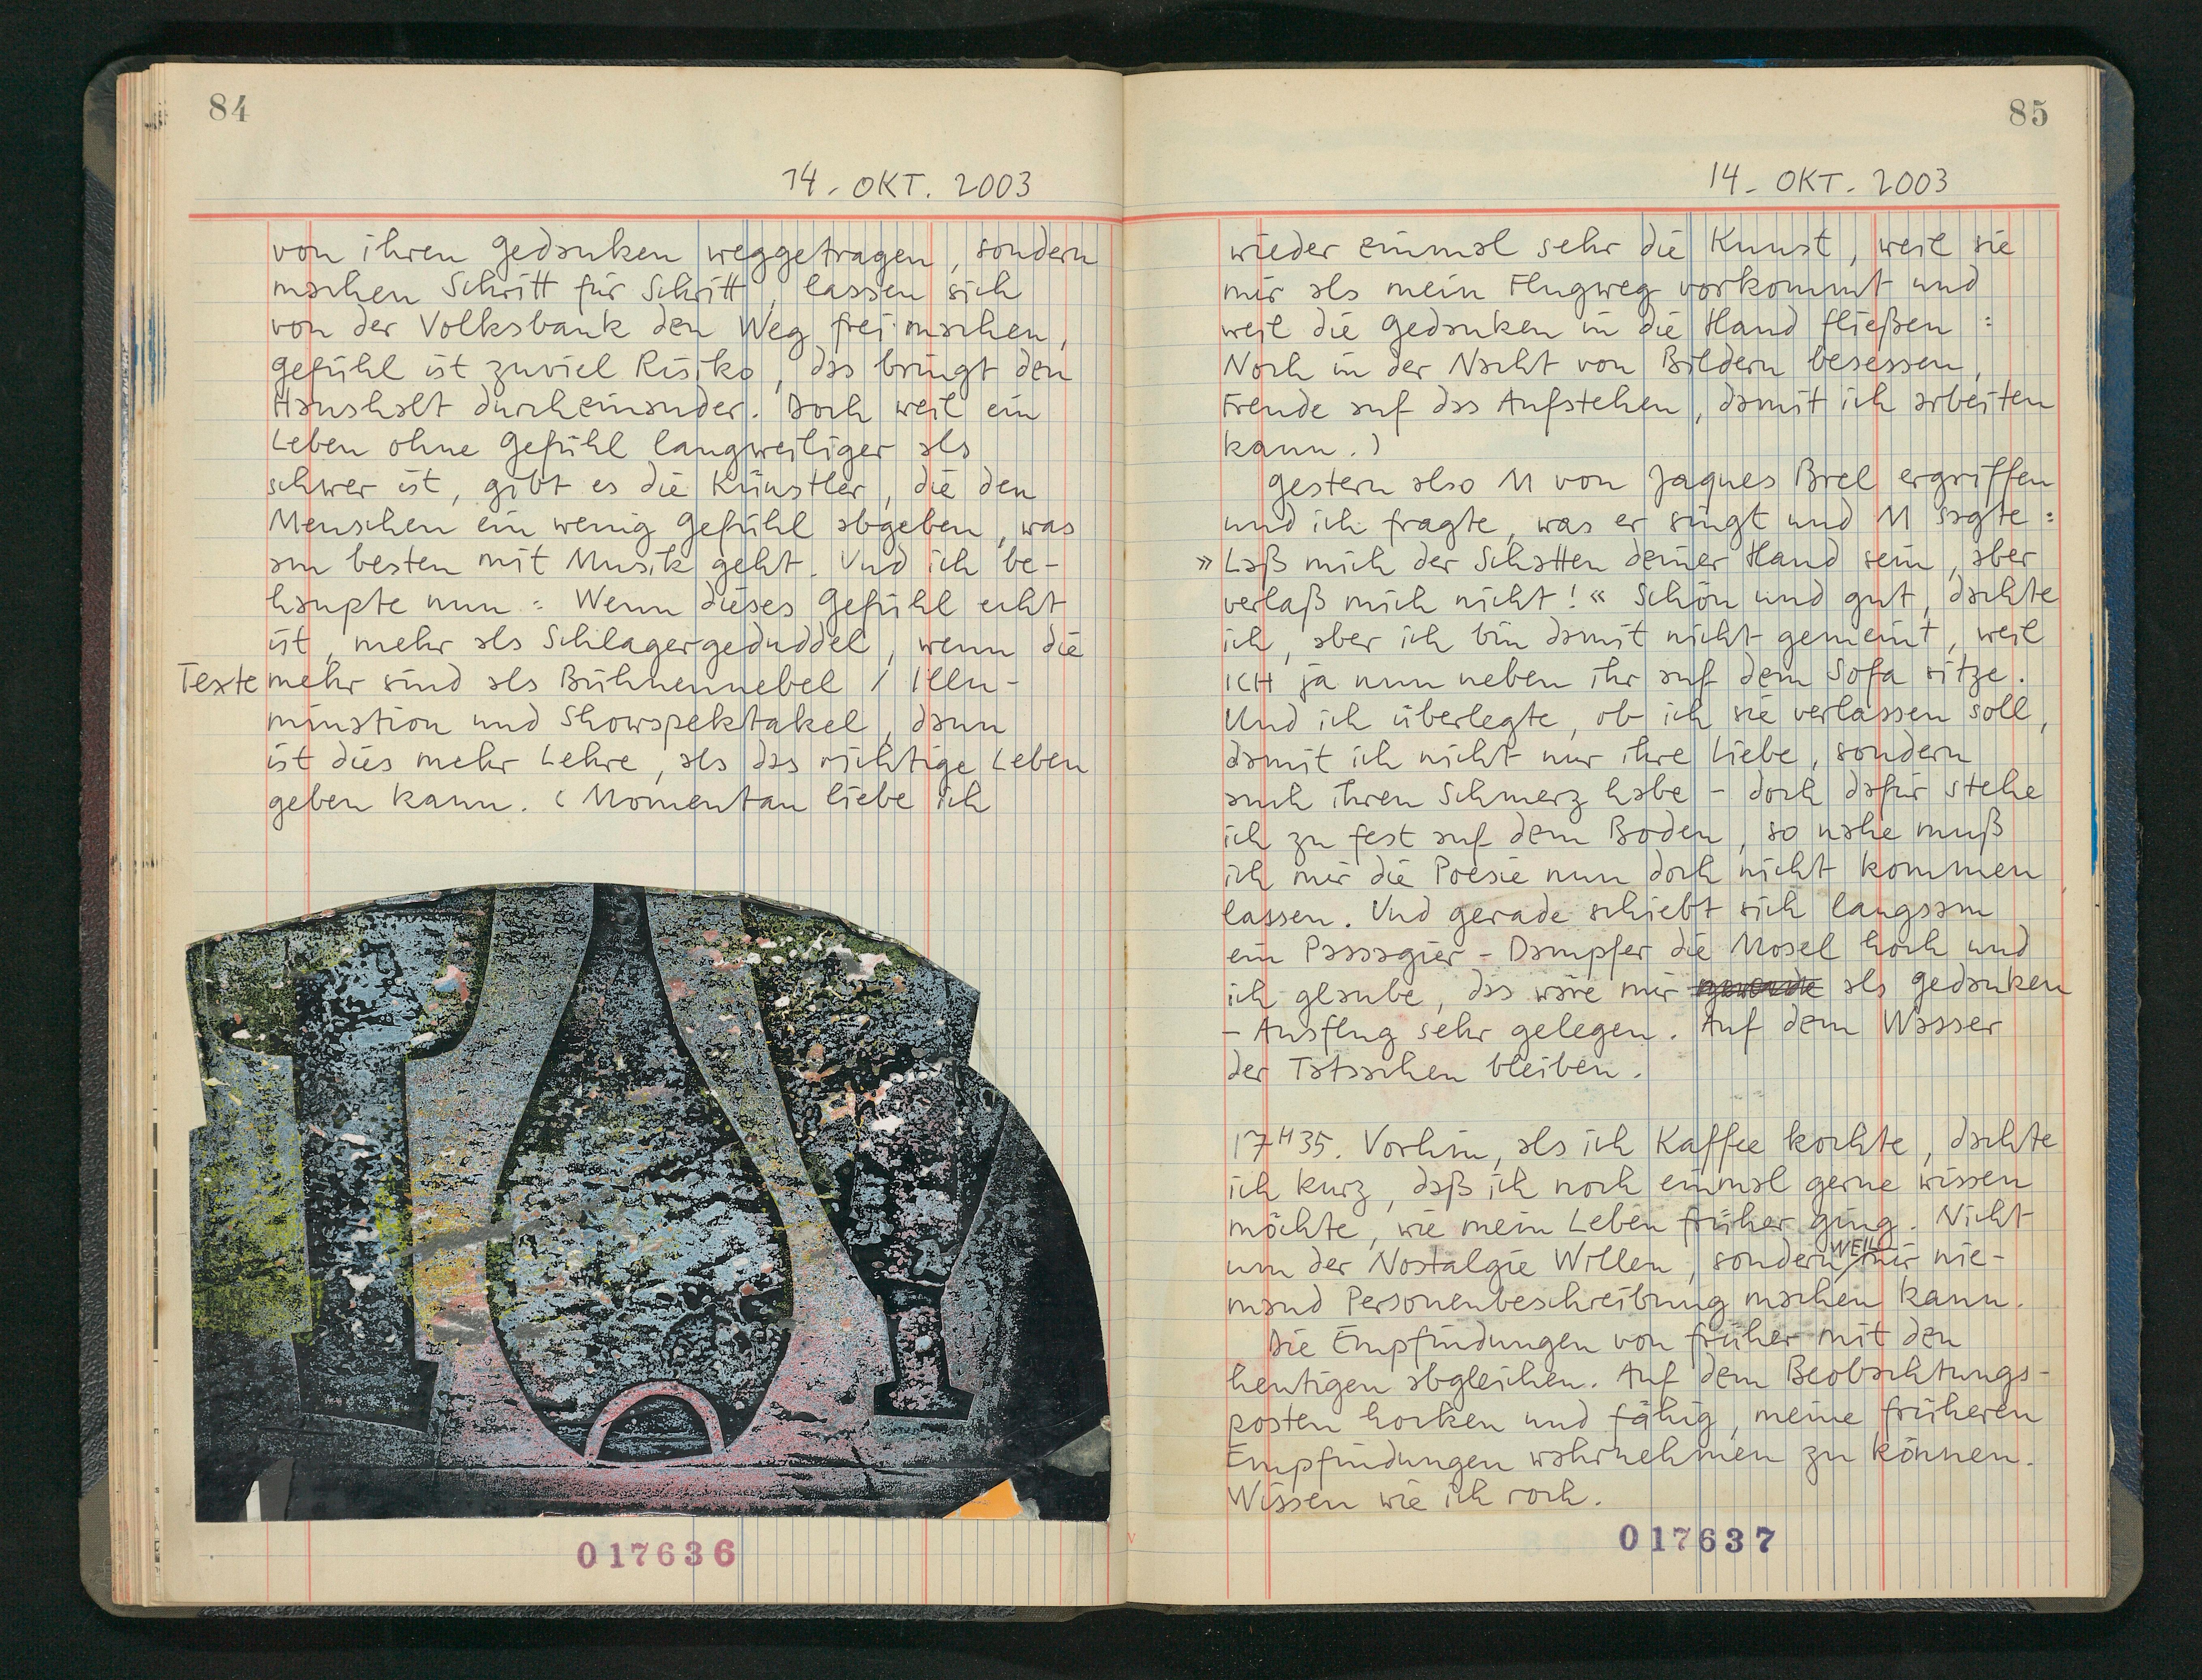 84
14. OKT. 2003
von ihren Gedanken weggetragen, sondern
machen Schritt für Schritt, lassen sich
von der Volksbank den Weg frei machen,
Gefühl ist zuviel Risiko, das bringt den
Haushalt durcheinander. Doch weil ein
Leben ohne Gefühl langweiliger als
schwer ist, gibt es die Künstler, die den
Menschen ein wenig Gefühl abgeben, was
am besten mit Musik geht. Und ich be-
haupte nun: Wenn dieses Gefühl echt
ist, mehr als Schlagergeduddel, wenn die
Texte mehr sind als Bühnennebel / Illu-
mination und Showspektakel, dann
ist dies mehr Lehre, als das richtige Leben
geben kann. (Momentan liebe ich
017636
85
14. OKT. 2003
wieder einmal sehr die Kunst, weil sie
mir als mein Flugweg vorkommt und
weil die Gedanken in die Hand fließen:
Noch in der Nacht von Bildern besessen,
Freude auf das Aufstehen, damit ich arbeiten
kann.)
Gestern also M von Jaques Brel ergriffen
und ich fragte, was er singt und M sagte:
»Laß mich der Schatten deiner Hand sein, aber
verlaß mich nicht!« Schön und gut, dachte
ich, aber ich bin damit nicht gemeint, weil
ICH ja nun neben ihr auf dem Sofa sitze.
Und ich überlegte, ob ich sie verlassen soll,
damit ich nicht nur ihre Liebe, sondern
auch ihren Schmerz habe – doch dafür stehe
ich zu fest auf dem Boden, so nahe muß
ich mir die Poesie nun doch nicht kommen
lassen. Und gerade schiebt sich langsam
ein Passagier-Dampfer die Mosel hoch und
ich glaube, das wäre mir als Gedanken
-Ausflug sehr gelegen. Auf dem Wasser
der Tatsachen bleiben.
17H35. Vorhin, als ich Kaffee kochte, dachte
ich kurz, daß ich noch einmal gerne wissen
möchte, wie mein Leben früher ging. Nicht
um der Nostalgie Willen, sondern WEIL mir nie-
mand Personenbeschreibung machen kann.
Die Empfindungen von früher mit den
heutigen abgleichen. Auf dem Beobachtungs-
posten hocken und fähig, meine früheren
Empfindungen wahrnehmen zu können.
Wissen wie ich roch.
017637